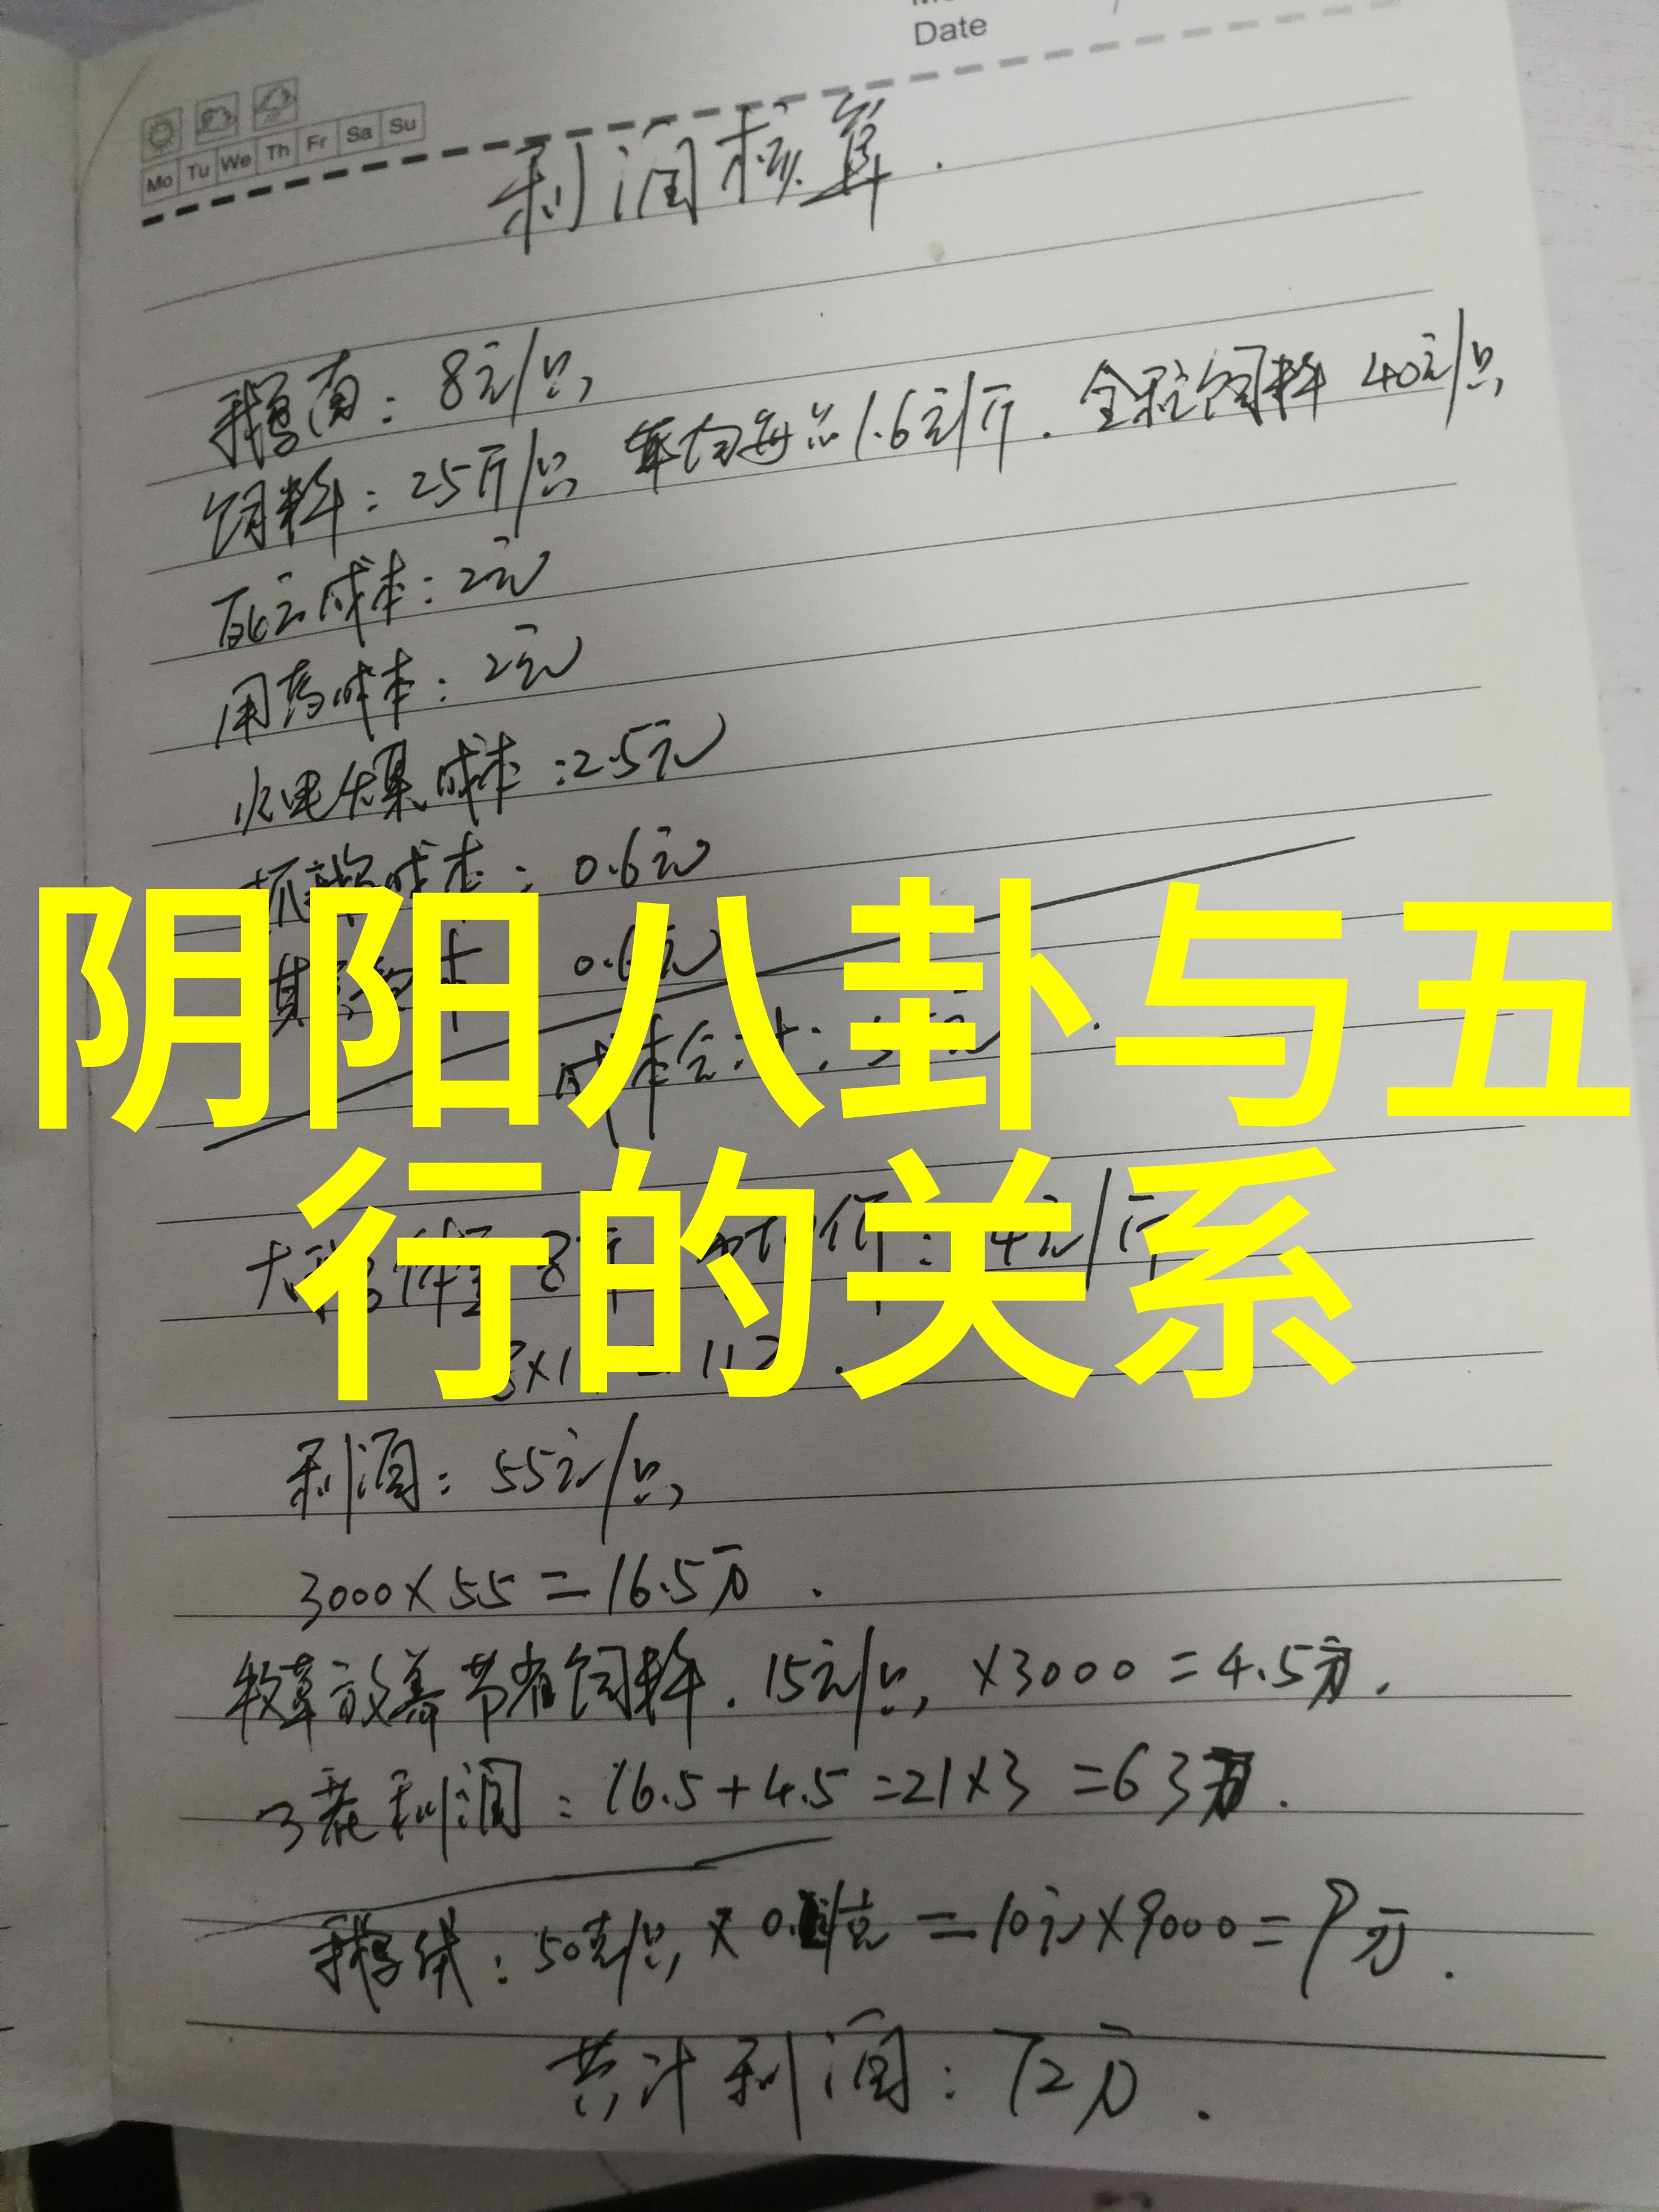 Date
Mo Tu We Th Fr Sa Su
利润核算.
鹅苗：8元/只
饲料：25斤/只 年均每 1.6元/斤. 全程饲料 40元/只
死亡成本：2元
用药成本：2元
水电煤成本：2.5元
成本：0.6元
0.6元
阴阳八卦与五
行的关系
成本合计：
大鹅体重8斤 4元/斤
利润：55元/只
3000×55=16.5万.
牧草放养节省饲料.15元/只,×3000=4.5万.
3茬利润：16.5+4.5=21×3=63万.
鹅绒：50克/只×0. /克=10元×9000=9万.
共计利润：72万.